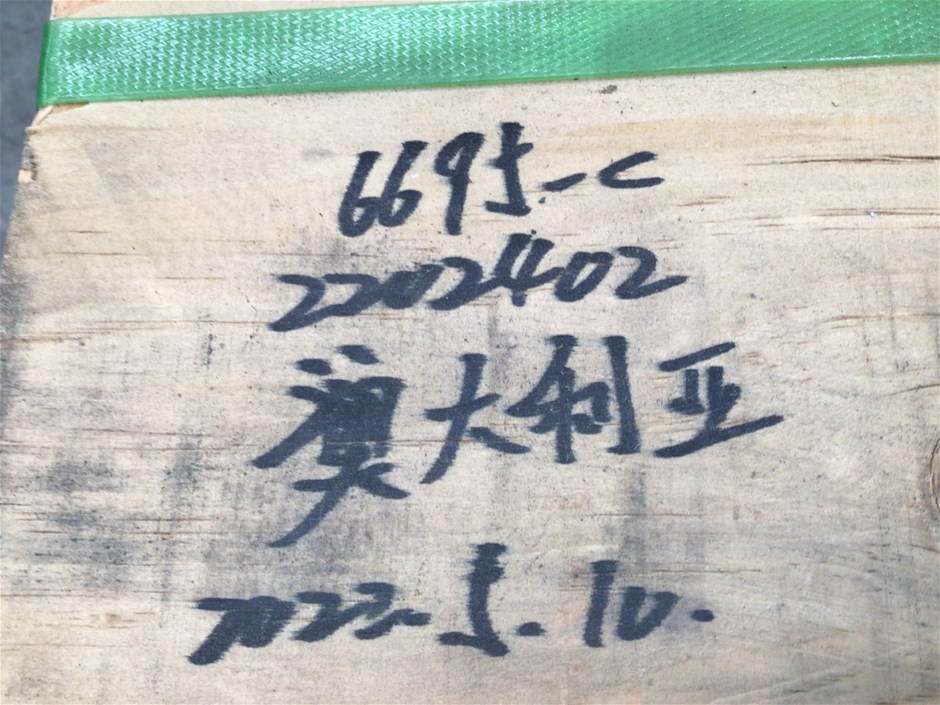 6695-C
2202402
澳大利亚
2022.5.10.